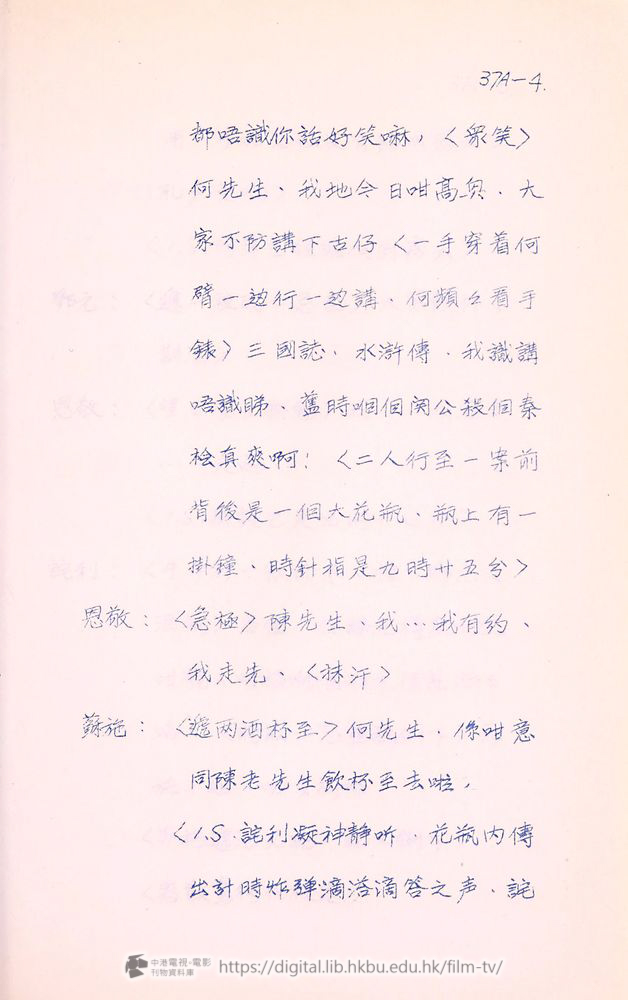 37A-4.
都唔識你話好笑嘛，〈衆笑〉
何先生、我地今日咁高兴、大
家不防講下古仔〈一手穿着何
臂一边行一边講、何頻々看手
錶〉三國誌、水滸傳、我識講
唔識睇、舊時嗰個関公殺個秦
桧真爽啊！〈二人行至一案前
背後是一個大花瓶、瓶上有一
掛鐘、時針指是九時廿五分〉
恩敬：〈急極〉陳先生、我…我有約、
我走先、〈抹汗〉
蘇施：〈遞两酒杯至〉何先生、係咁意
同陳老先生飲杯至去啦，
〈I.S.詫利凝神静听、花瓶内傳
出計時炸弹滴答滴答之声、詫
中港電視·電影
刊物資料庫
https://digital.lib.hkbu.edu.hk/film-tv/